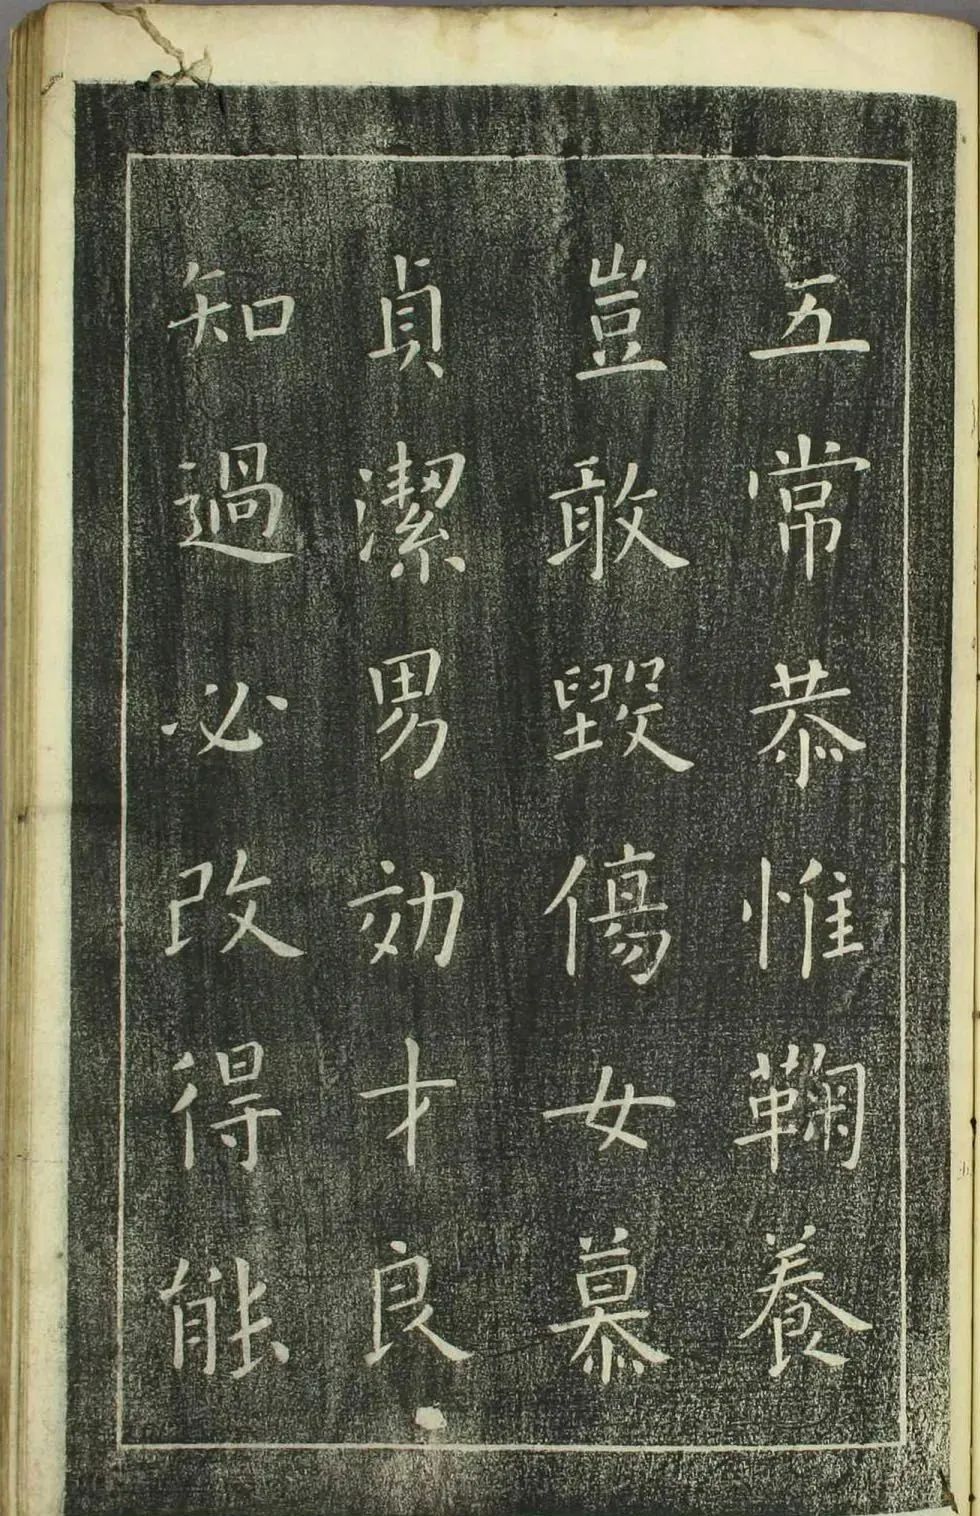 五常恭惟鞠養
豈敢毀傷女慕
貞潔男効才良
知過必改得能